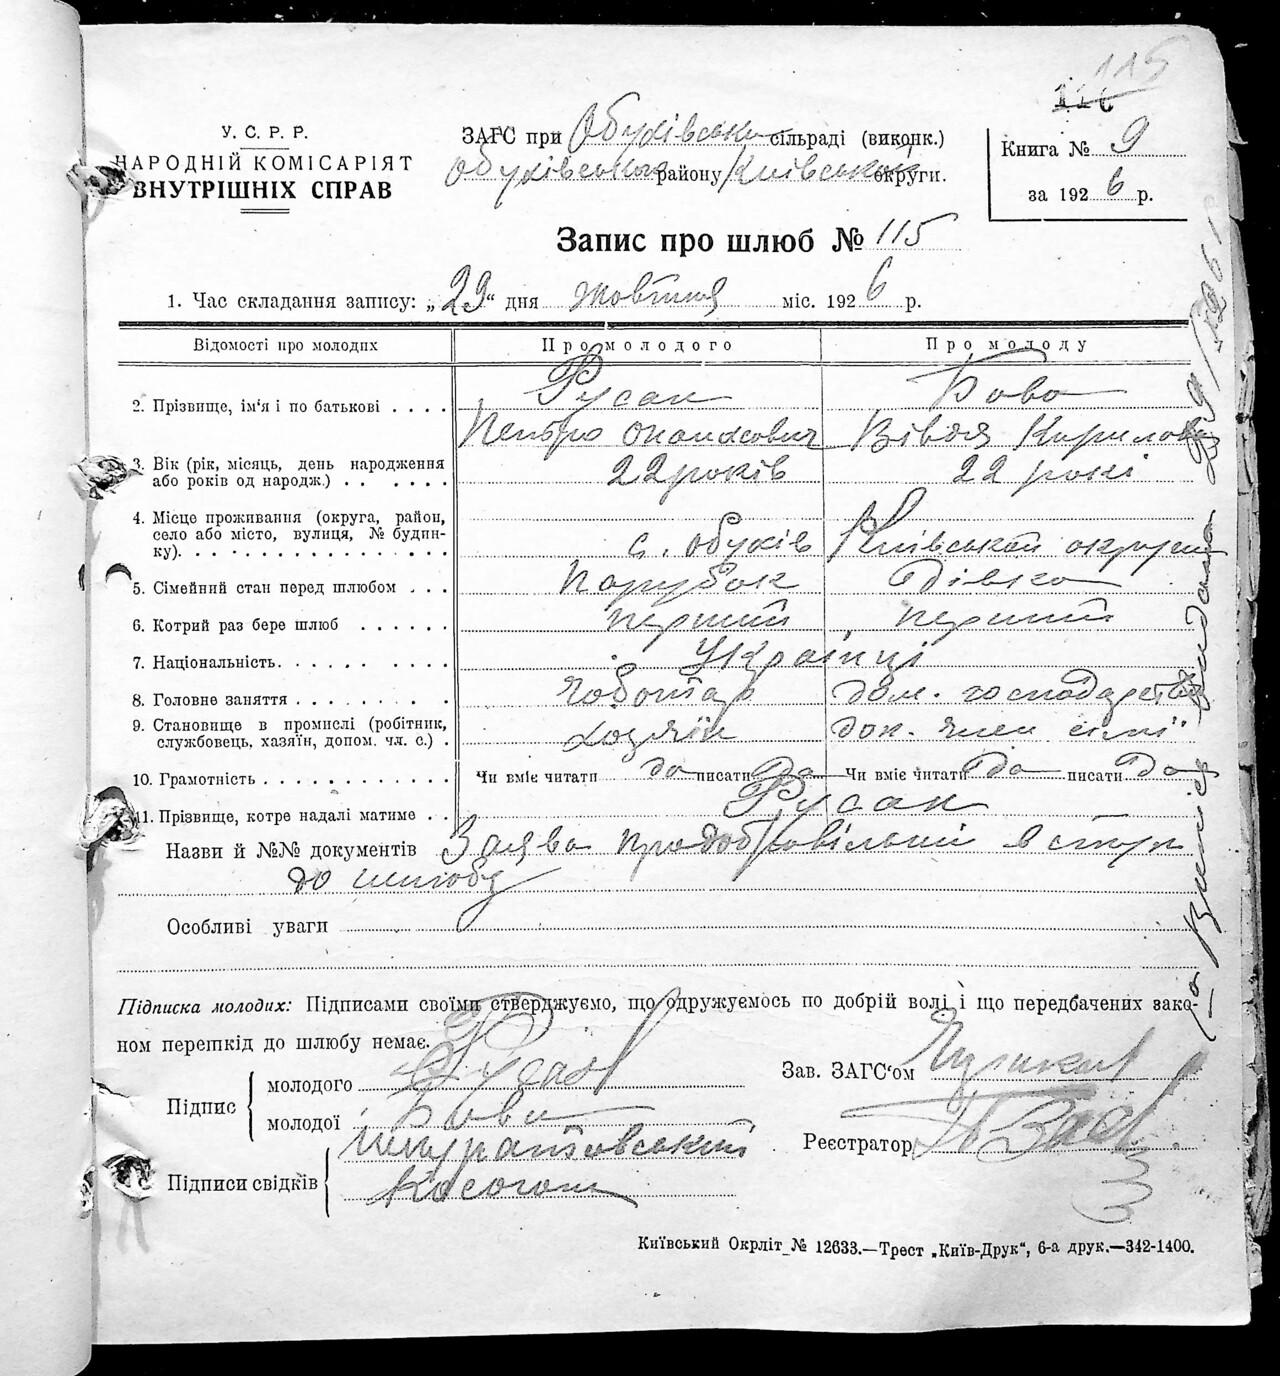 115
У. С. Р. Р.
НАРОДНІЙ КОМІСАРІЯТ
ВНУТРІШНІХ СПРАВ
ЗАГС при Обухівські сільраді (виконк.)
Обухівського району Київської округи.
Книга № 9
за 1926 р.
Запис про шлюб № 115
1. Час складання запису: „29“ дня жовтня міс. 1926 р.
Відомості про молодих Про молодого Про молоду
2. Прізвище, ім'я і по батькові . . . . Русан Бово
Петро Опанасович Вівдя Кирилов
3. Вік (рік, місяць, день народження або років од народж.) . . . . . . 22 років 22 рокі
4. Місце проживання (округа, район, село або місто, вулиця, № будинку). . . . . с. Обухів Київської округи
5. Сімейний стан перед шлюбом . . . Парубок Дівка
6. Котрий раз бере шлюб . . . . . . перший перший
7. Національність. . . . . . . . . Українці
8. Головне заняття . . . . . . . . Чоботар дом. господарств
9. Становище в промислі (робітник, службовець, хазяїн, допом. чл. с.) . хазяїн доп. член сімї
10. Грамотність . . . . . . . . . . Чи вміє читати да писати да Чи вміє читати да писати да
11. Прізвище, котре надалі матиме . . Русан
Назви й №№ документів Заява про добровільний вступ
до шлюбу
Особливі уваги
Підписка молодих: Підписами своїми стверджуємо, що одружуємось по добрій волі і що передбачених зако-
ном перешкід до шлюбу немає.
Підпис
молодого Русан
молодої Бово
Підписи свідків
Зав. ЗАГС'ом
Реєстратор
Київський Окрліт № 12633.—Трест „Київ-Друк“, 6-а друк.—342-1400.